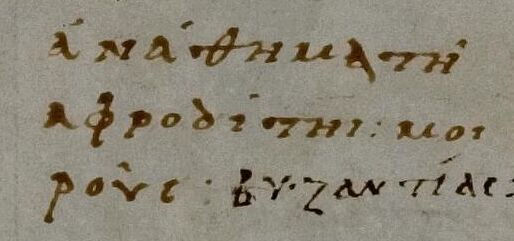 ἀνάθημα τῆ
ἀφροδίτηι: μοι
ροῦς· βυζαντίας: